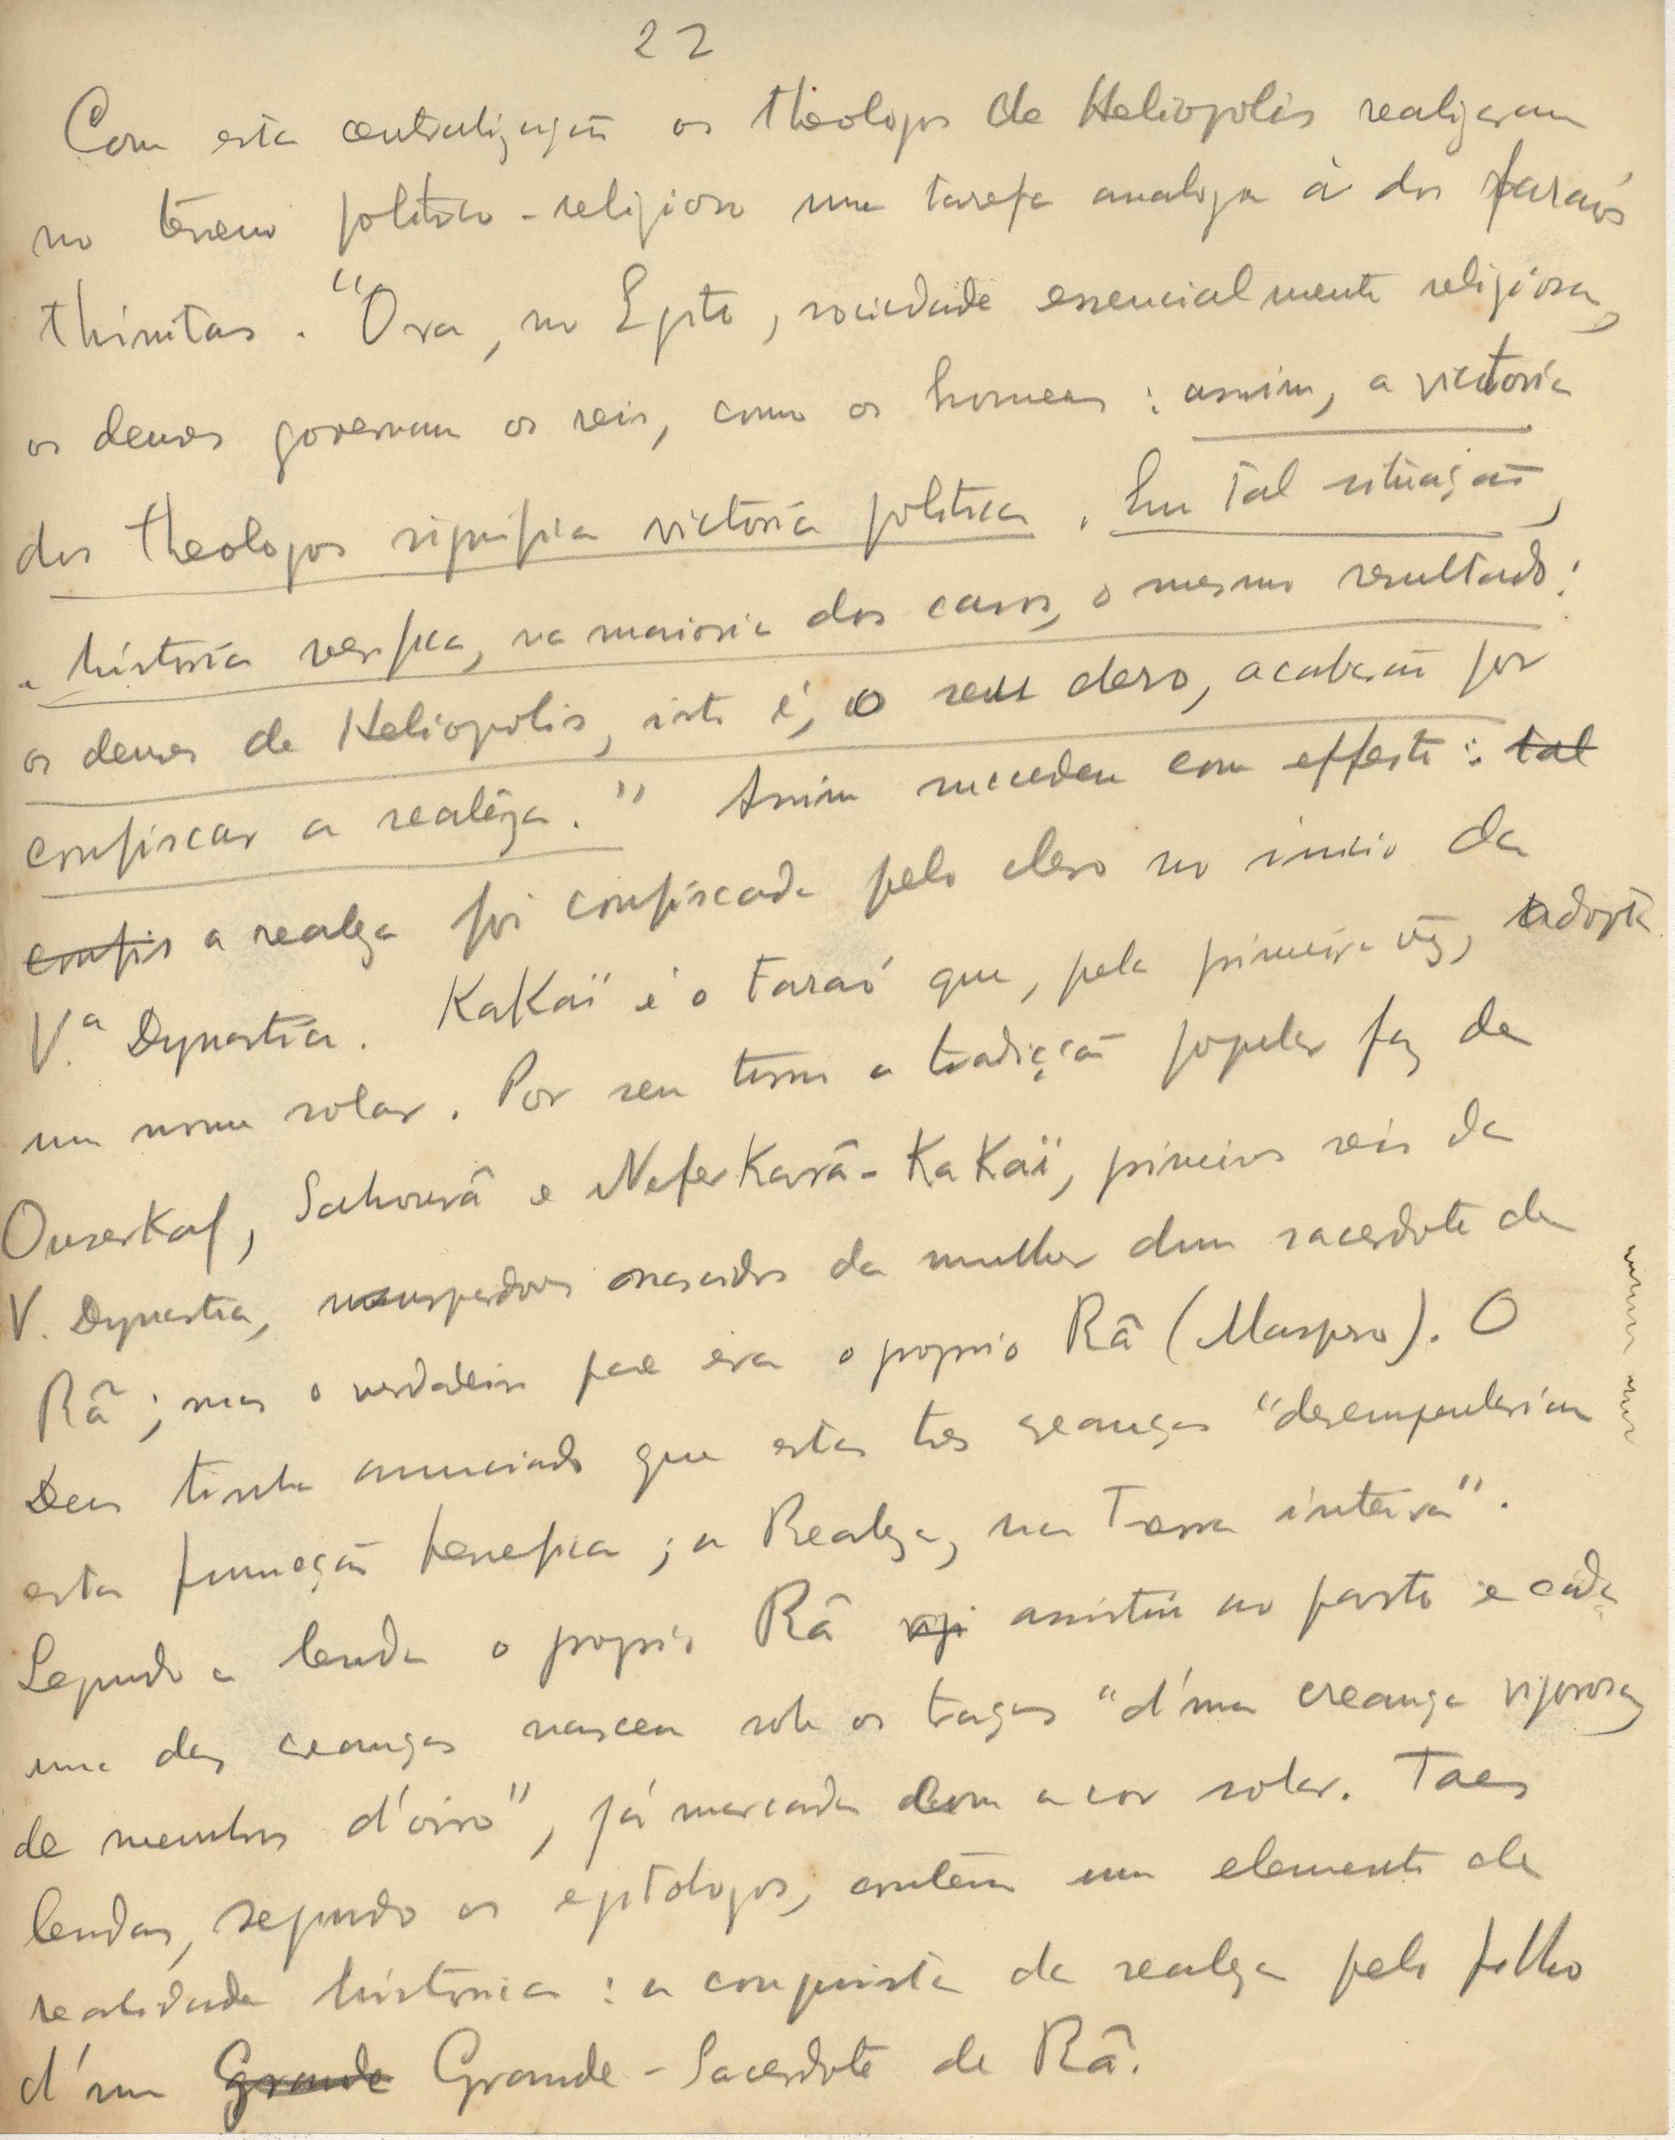 22
Com esta centralização os theologos de Heliopolis realizaram
no terreno politico-religioso uma tarefa analoga à dos faraós
thinitas. "Ora, no Egito, sociedade essencialmente religiosa,
os deuses governam os reis, como os homens: assim, a victoria
dos theologos significa victoria politica. Em tal situação,
a historia verifica, na maioria dos casos, o mesmo resultado:
os deuses de Heliopolis, isto é, o seu clero, acabarão por
confiscar a realêza." Assim succedeu com effeito: tal
confis a realeza foi confiscada pelo clero no inicio da
V.ª Dynastia. KaKaï é o Faraó que, pela primeira vêz, adopta
um nome solar. Por seu turno a tradicção popular faz de
OuserKaf, Sahourâ e NeferKarâ-KaKaï, primeiros reis da
V. Dynastia, usurpadores nascidos da mulher dum sacerdote de
Râ; mas o verdadeiro pae era o proprio Râ (Maspero). O
Deus tinha annunciado que estas tres creanças "desempenhariam
esta funcção benefica; a Realeza, na Terra inteira".
Segundo a lenda o proprio Râ assistiu ao parto e cada
uma das creanças nasceu sob os traços "d'uma creança vigorosa,
de membros d'oiro", já marcada com a cor solar. Taes
lendas, segundo os egiptologos, contêm um elemento de
realidade historica: a conquista da realeza pelo filho
d'um Grande Grande-Sacerdote de Râ.